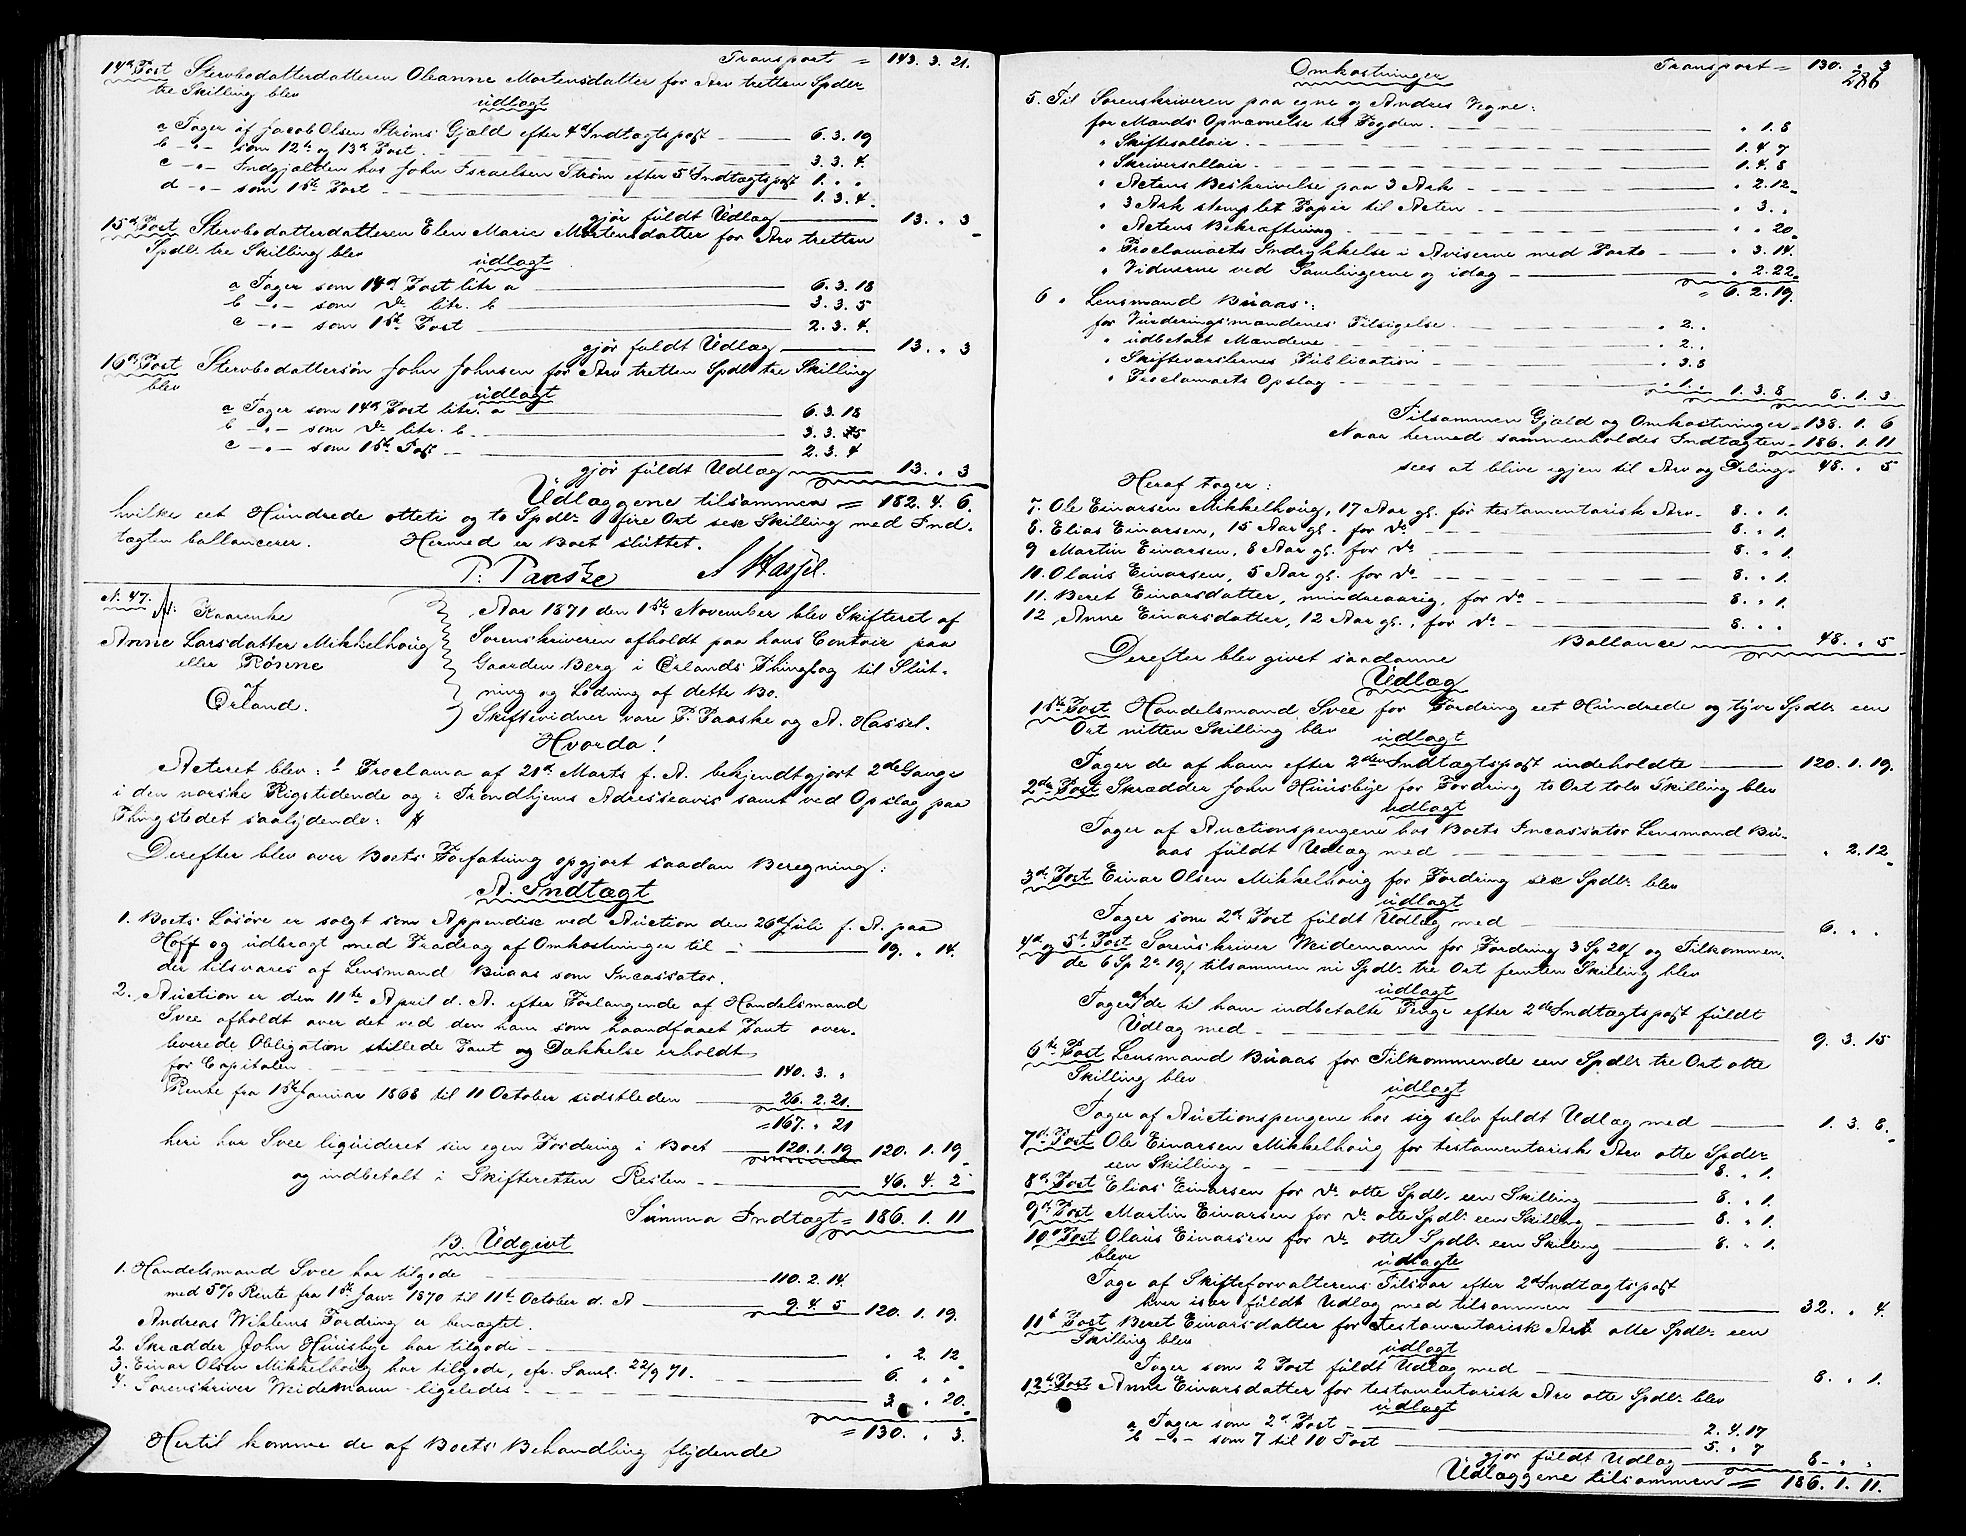 Transport = 143. 3. 21.
14d Post Stervbodatterdatteren Oleanne Mortensdatter for Arv tretten Spdlr
tre Skilling blev
udlagt
a Tager af Jacob Olsen Strøms Gjæld efter 4d Indtægtspost — 6. 3. 19
b -"- som 12te og 13d Post — 3. 3. 4.
c -"- Indgjælden hos John Israelsen Strøm efter 5t Indtægtspost 1. " "
d -"- som 1ste Post — 1. 3. 4.
gjør fuldt Udlæg — 13. " 3
15d Post Stervbodatterdatteren Elen Marie Mortensdatter for Arv tretten
Spdlr tre Skilling blev
udlagt
a Tager som 14d Post litr. a — 6. 3. 18
b -"- som do litr. b — 3. 3. 5
c -"- som 1ste Post — 2. 3. 4.
gjør fuldt Udlæg — 13. " 3
16d Post Stervbodattersøn John Johnsen for Arv tretten Spdlr tre Skilling
blev
udlagt
a Tager som 14d Post litr. a — 6. 3. 18
b -"- som do litr. b. — 3. 3. 5
c -"- som 1ste Post — 2. 3. 4
gjør fuldt Udlæg — 13. " 3
Udlæggene tilsammen = 182. 4. 6.
hvilke eet Hundrede otteti og to Spdlr fire Ort sex Skilling med Ind-
tægten ballancerer. Hermed er Boet sluttet.
P. Paaske A Hassel.
N. 47.
Kaarenke
Anne Larsdatter Mikkelhoug
eller Rønne
af
Ørland.
Aar 1871 den 1ste November blev Skifteret af
Sorenskriveren afholdt paa hans Contoir paa
Gaarden Berg i Ørlands Thinglag til Slut-
ning og Lodning af dette Bo.
Skiftevidner vare P. Paaske og A. Hassel.
Hvorda!
Acteret blev: 1 Proclama af 21d Marts f. A. bekjendtgjort 2de Gange
i den norske Rigstidende og i Trondhjems Adresseavis samt ved Opslag paa
Thingstedet saalydende:
Derefter blev over Boets Forfatning opgjort saadan Beregning:
A. Indtægt
1. Boets Løsøre er solgt som Appendix ved Auction den 26d Juli f. A. paa
Hoff og udbragt med Fradrag af Omkostninger til — 19. " 14.
der tilsvares af Lensmand Buaas som Incassator.
2. Auction er den 11te April d. A. efter Forlangende af Handelsmand
Svee afholdt over det ved den ham som haandfaaet Pant over-
leverede Obligation stillede Pant og Dækkelse erholdt
for Capitalen — 140. 3. "
Rente fra 1ste Januar 1868 til 11 October sidstleden — 26. 2. 21.
= 167. " 21
heri har Svee liquideret sin egen Fordring i Boet — 120. 1. 19 120. 1. 19
og indbetalt i Skifteretten Resten — 46. 4. 2
Summa Indtægt = 186. 1. 11
B. Udgivt
1. Handelsmand Svee har tilgode — 110. 2. 14.
med 5% Rente fra 1ste Janr 1870 til 11te October d. A — 9. 4. 5 120. 1. 19.
Andreas Wiklems Fordring er benægtet.
2. Skrædder John Huusbye har tilgode — " 2. 12
3. Einar Olsen Mikkelhoug har tilgode, efr. Saml. 22/9 71. — 6. " "
4. Sorenskriver Weidemann ligeledes — 3. " 20.
= 130. " 3.
Hertil komme de af Boets Behandling flydende
286
Omkostninger Transport = 130. " 3
5. Til Sorenskriveren paa egne og Andres Vegne:
for Mænds Opnævnelse til Fogden. — " 1. 8
" Skiftesallair. — 1. 4 7
" Skriversallair — 1. 4. 8
" Actens Beskrivelse paa 3 Ark — " 2. 12
" 3 Ark stemplet Papir til Acten — " 3. "
" Actens Bekræftning — " " 20
" Proclamaets Indrykkelse i Aviserne med Porto — " 3. 14.
" Vidnerne ved Samlingerne og idag — " 2. 22
= 6. 2. 19.
6 " Lensmand Buaas:
for Vurderingsmændenes Tilsigelse — " 2. "
" udbetalt Mændene — " 2. "
" Skiftevarslernes Publication — " 3. 8
" Proclamaets Opslag — " 1. " 1. 3. 8 8. 1. 3.
Tilsammen Gjæld og Omkostninger = 138. 1. 6
Naar hermed sammenholdes Indtægten = 186. 1. 11
sees at blive igjen til Arv og Deling = 48. " 5
Heraf tager:
7. Ole Einarsen Mikkelhoug, 17 Aar gl. for testamentarisk Arv — 8. " 1.
8. Elias Einarsen, 15 Aar gl. for do — 8. " 1.
9 Martin Einarsen, 8 Aar gl. for do — 8. " 1.
10. Olaus Einarsen, 5 Aar gl. for do — 8. " 1.
11. Beret Einarsdatter, mindreaarig, for do — 8. " 1.
12 Anne Einarsdatter, 12 Aar gl., for do — 8. " "
Ballance — 48. " 5
Derefter blev givet saadanne
Udlæg
1ste Post Handelsmand Svee for Fordring eet Hundrede og tyve Spdlr een
Ort nitten Skilling blev
udlagt
Tager de af ham efter 2den Indtægtspost indeholdte — 120. 1. 19.
2de Post Skrædder John Huusbye for Fordring to Ort tolv Skilling blev
udlagt
Tager af Auctionspengene hos Boets Incassator Lensmand Bu-
aas fuldt Udlæg med — " 2. 12
3de Post Einar Olsen Mikkelhoug for Fordring sex Spdlr blev
udlagt
Tager som 2d Post fuldt Udlæg med — 6. " "
4d og 5t Post Sorenskriver Weidemann for Fordring 3 Sp 20 s og Tilkommen-
de 6 Sp 2 o 19 s tilsammen ni Spdlr tre Ort femten Skilling blev
udlagt
Tager af de til ham indbetalte Penge efter 2de Indtægtspost fuldt
Udlæg med — 9. 3. 15
6te Post Lensmand Buaas for Tilkommende een Spdlr tre Ort otte
Skilling blev
udlagt
Tager af Auctionspengene hos sig selv fuldt Udlæg med — 1. 3. 8.
7d Post Ole Einarsen Mikkelhoug for testamentarisk Arv otte Spdlr
een Skilling — 8. " 1.
8d Post Elias Einarsen for do otte Spdlr een Skilling — 8. " 1.
9d Post Martin Einarsen for do otte Spdlr een Skilling — 8. " 1.
10d Post Olaus Einarsen for do otte Spdlr een Skilling — 8. " 1.
bleve
udlagte
Tage af Skifteforvalterens Tilsvar efter 2d Indtægtspost
hver især fuldt Udlæg med tilsammen — 32. " 4.
11te Post Beret Einarsdatter for testamentarisk Arv otte Spdlr een
Skilling blev
udlagt
Tager som 2 Post fuldt Udlæg med — 8. " 1.
12te Post Anne Einarsdatter for testamentarisk Arv otte Spdlr blev
udlagt
a Tager som 2d Post — 2. 4. 17
b -"- som 7 til 10 Post — 5. " 7
gjør fuldt Udlæg — 8. " "
Udlæggene tilsammen = 186. 1. 11.